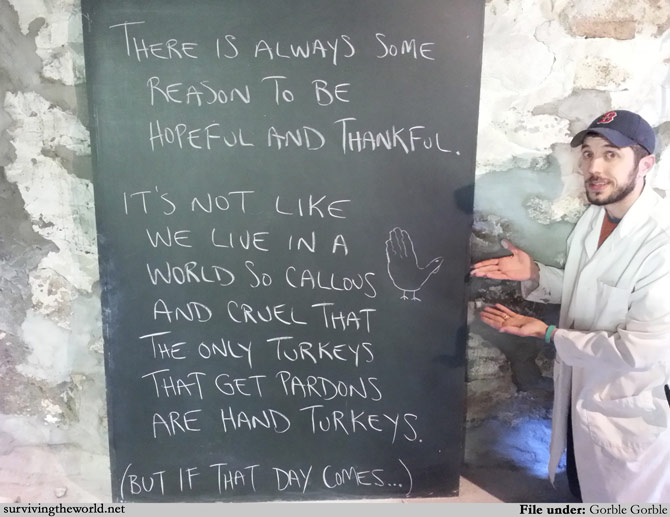 THERE IS ALWAYS SOME
REASON TO BE
HOPEFUL AND THANKFUL.
IT'S NOT LIKE
WE LIVE IN A
WORLD SO CALLOUS
AND CRUEL THAT
THE ONLY TURKEYS
THAT GET PARDONS
ARE HAND TURKEYS.
(BUT IF THAT DAY COMES...)
B
survivingtheworld.net
File under: Gorble Gorble